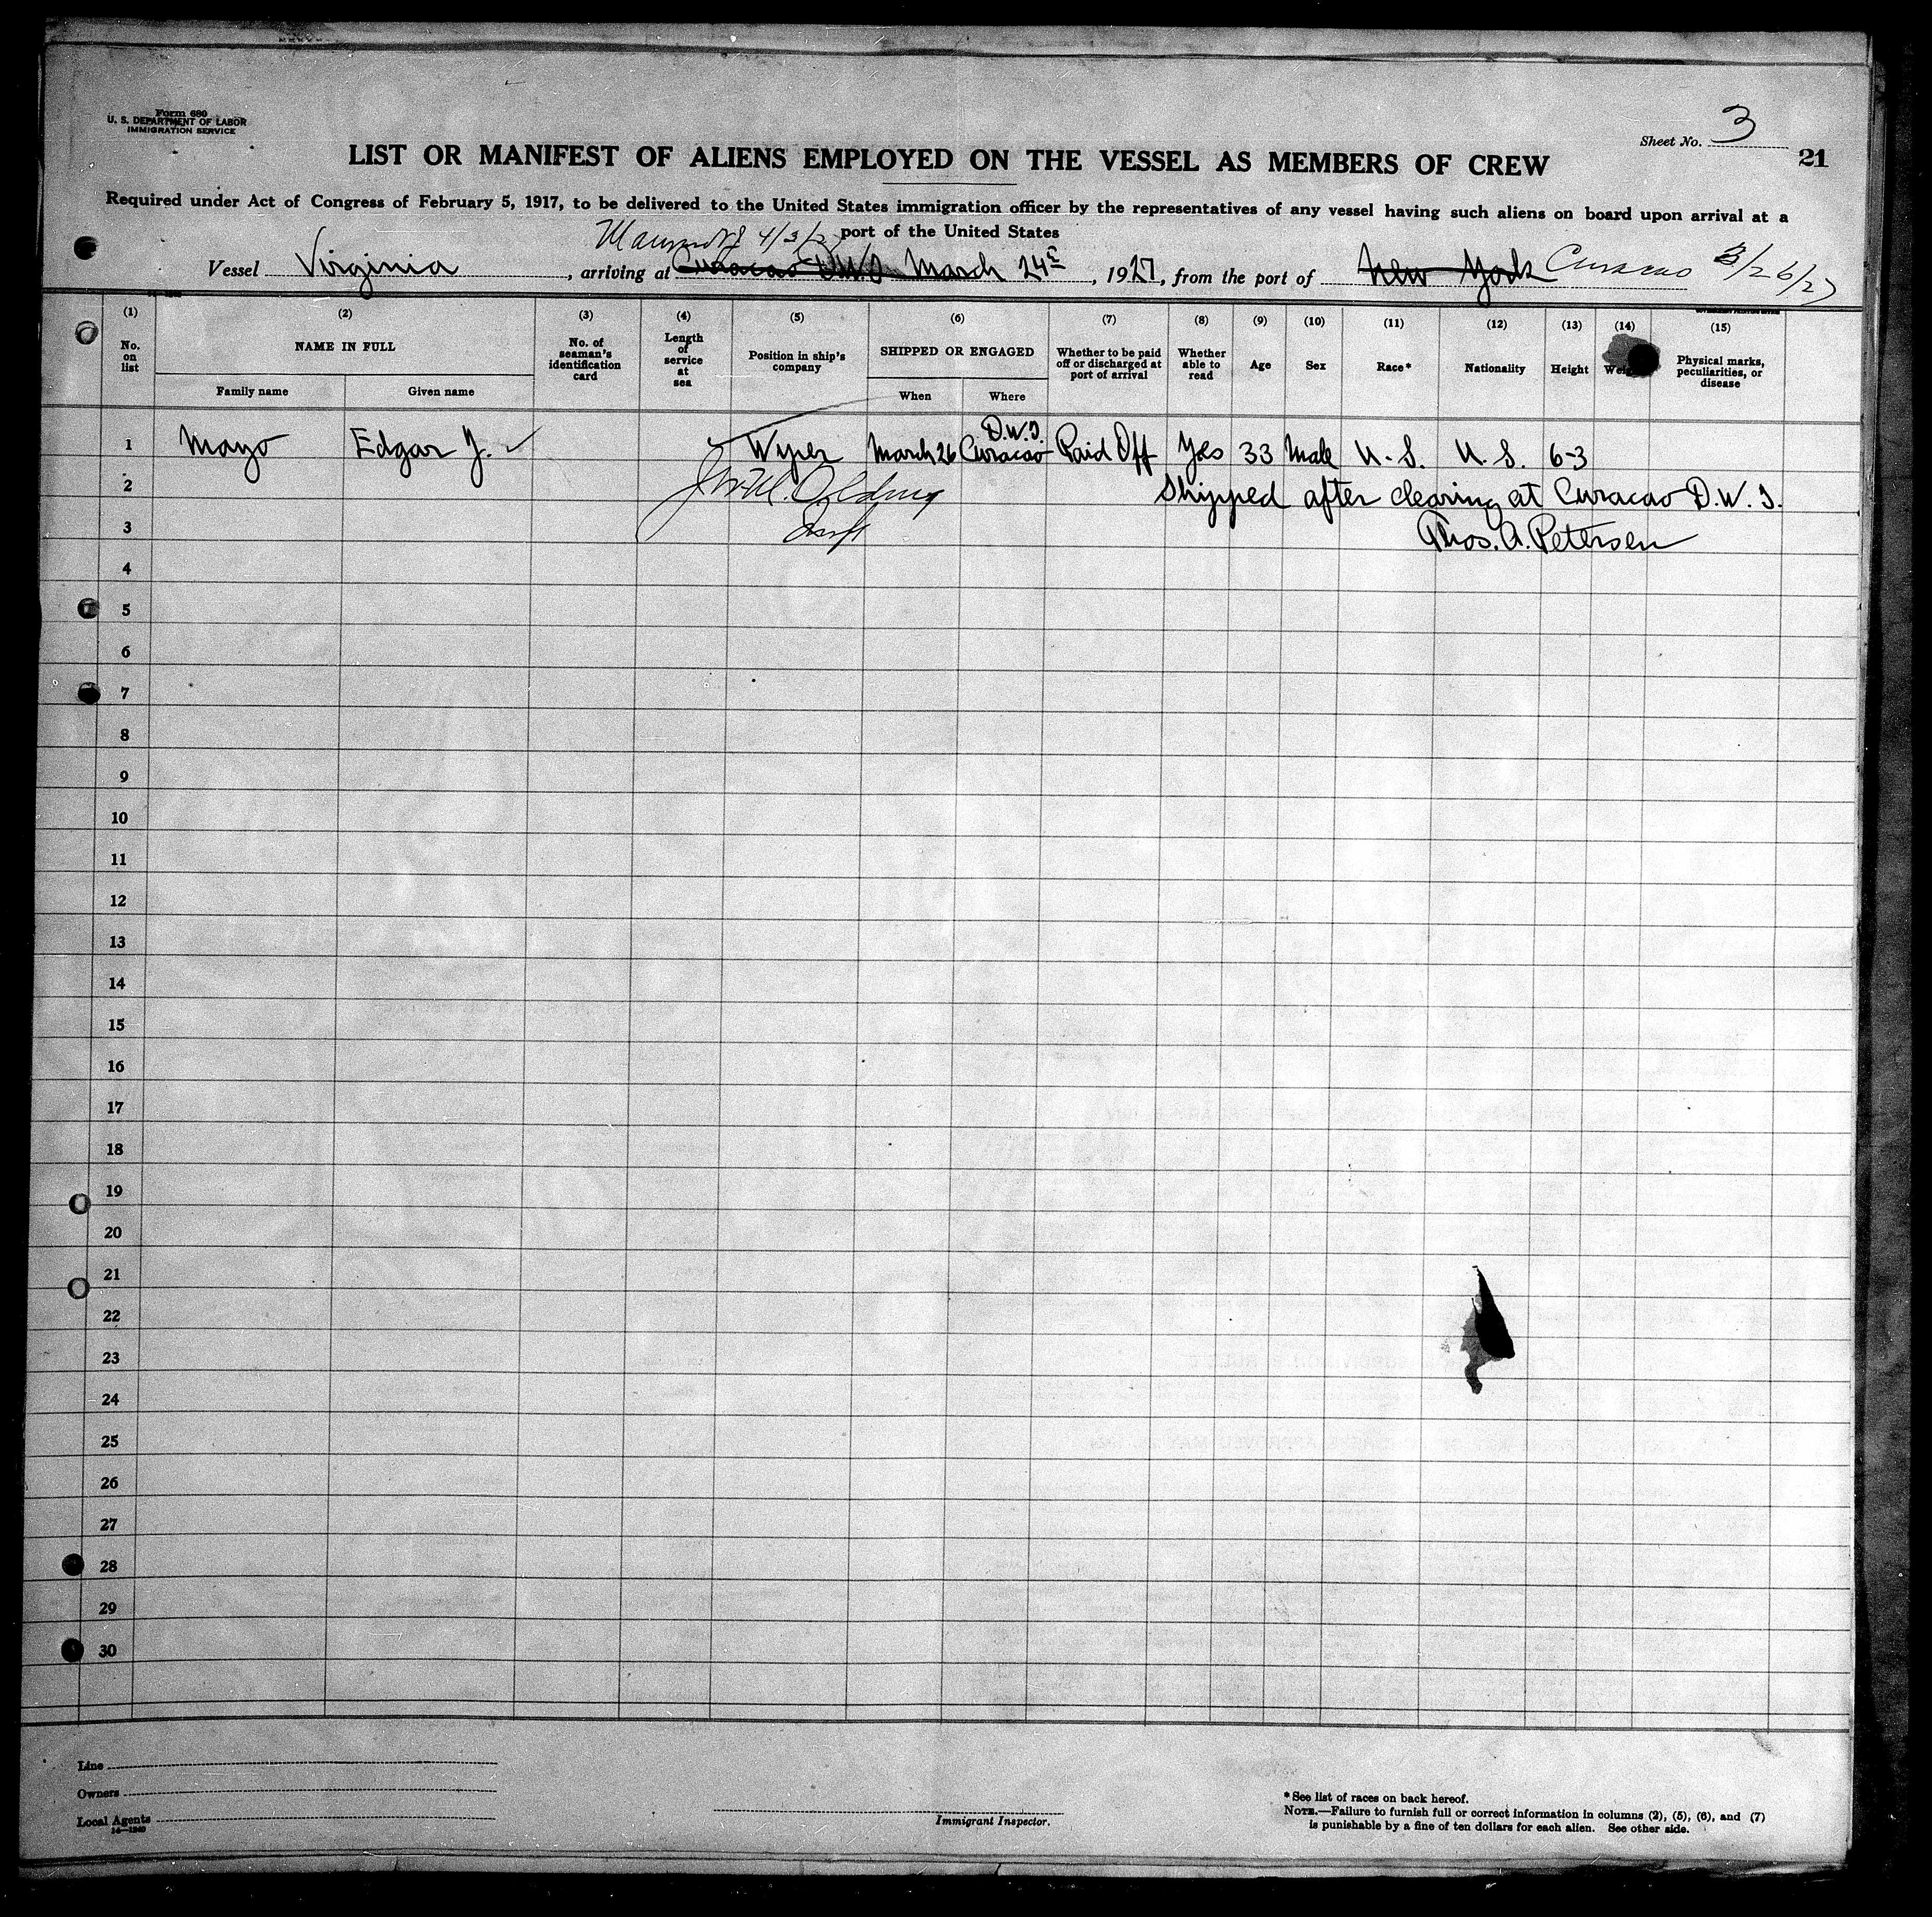 Form 680
U. S. DEPARTMENT OF LABOR
IMMIGRATION SERVICE
Sheet No. 3
21
LIST OR MANIFEST OF ALIENS EMPLOYED ON THE VESSEL AS MEMBERS OF CREW
Required under Act of Congress of February 5, 1917, to be delivered to the United States immigration officer by the representatives of any vessel having such aliens on board upon arrival at a
port of the United States
4/3/27
Vessel Virginia, arriving at Curacao March 24, 1927, from the port of New York Curacao 3/26/27
(1) (2) (3) (4) (5) (6) (7) (8) (9) (10) (11) (12) (13) (14) (15)
No. on list
NAME IN FULL
Family name
Given name
No. of seaman's identification card
Length of service at sea
Position in ship's company
SHIPPED OR ENGAGED
When
Where
Whether to be paid off or discharged at port of arrival
Whether able to read
Age
Sex
Race*
Nationality
Height
Physical marks, peculiarities, or disease
1 Mayo Edgar J. Wiper March 26 Curacao D.W.I. Paid Off Yes 33 Male U.S. U.S. 6-3
2 Shipped after clearing at Curacao D.W.I.
3 Thos. A. Petersen
4
5
6
7
8
9
10
11
12
13
14
15
16
17
18
19
20
21
22
23
24
25
26
27
28
29
30
Line
Owners
Local Agents
14—1240
Immigrant Inspector.
* See list of races on back hereof.
NOTE.—Failure to furnish full or correct information in columns (2), (5), (6), and (7)
is punishable by a fine of ten dollars for each alien. See other side.